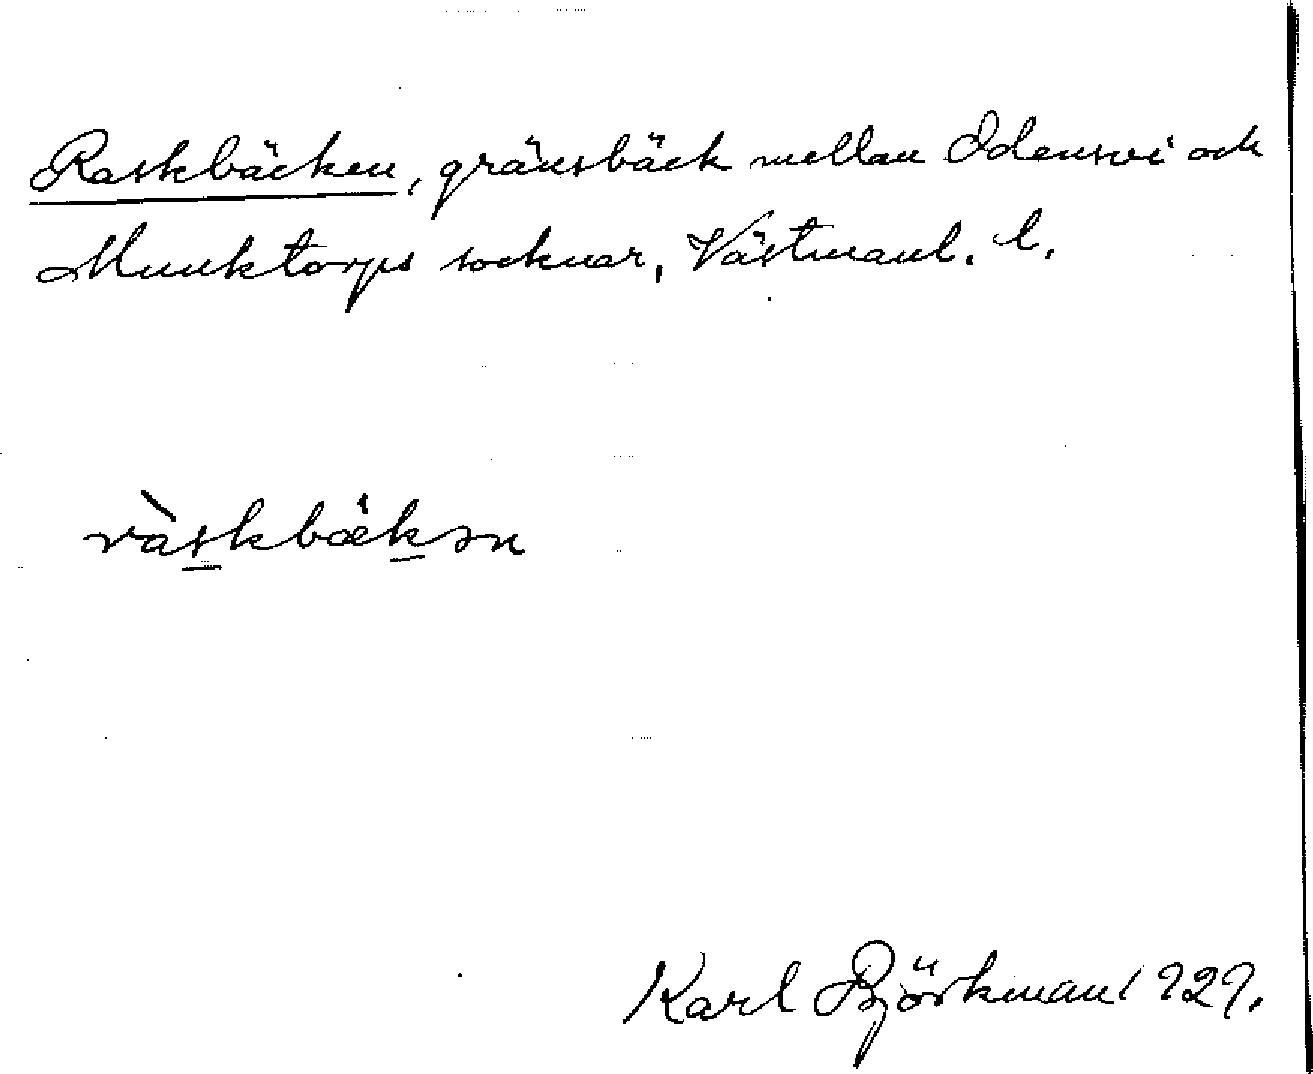 Raskbäcken, gränsbäck mellan Odensvi och
Munktorps socknar, Västmanl. l.
ràskbækən
Karl Björkman 1929.